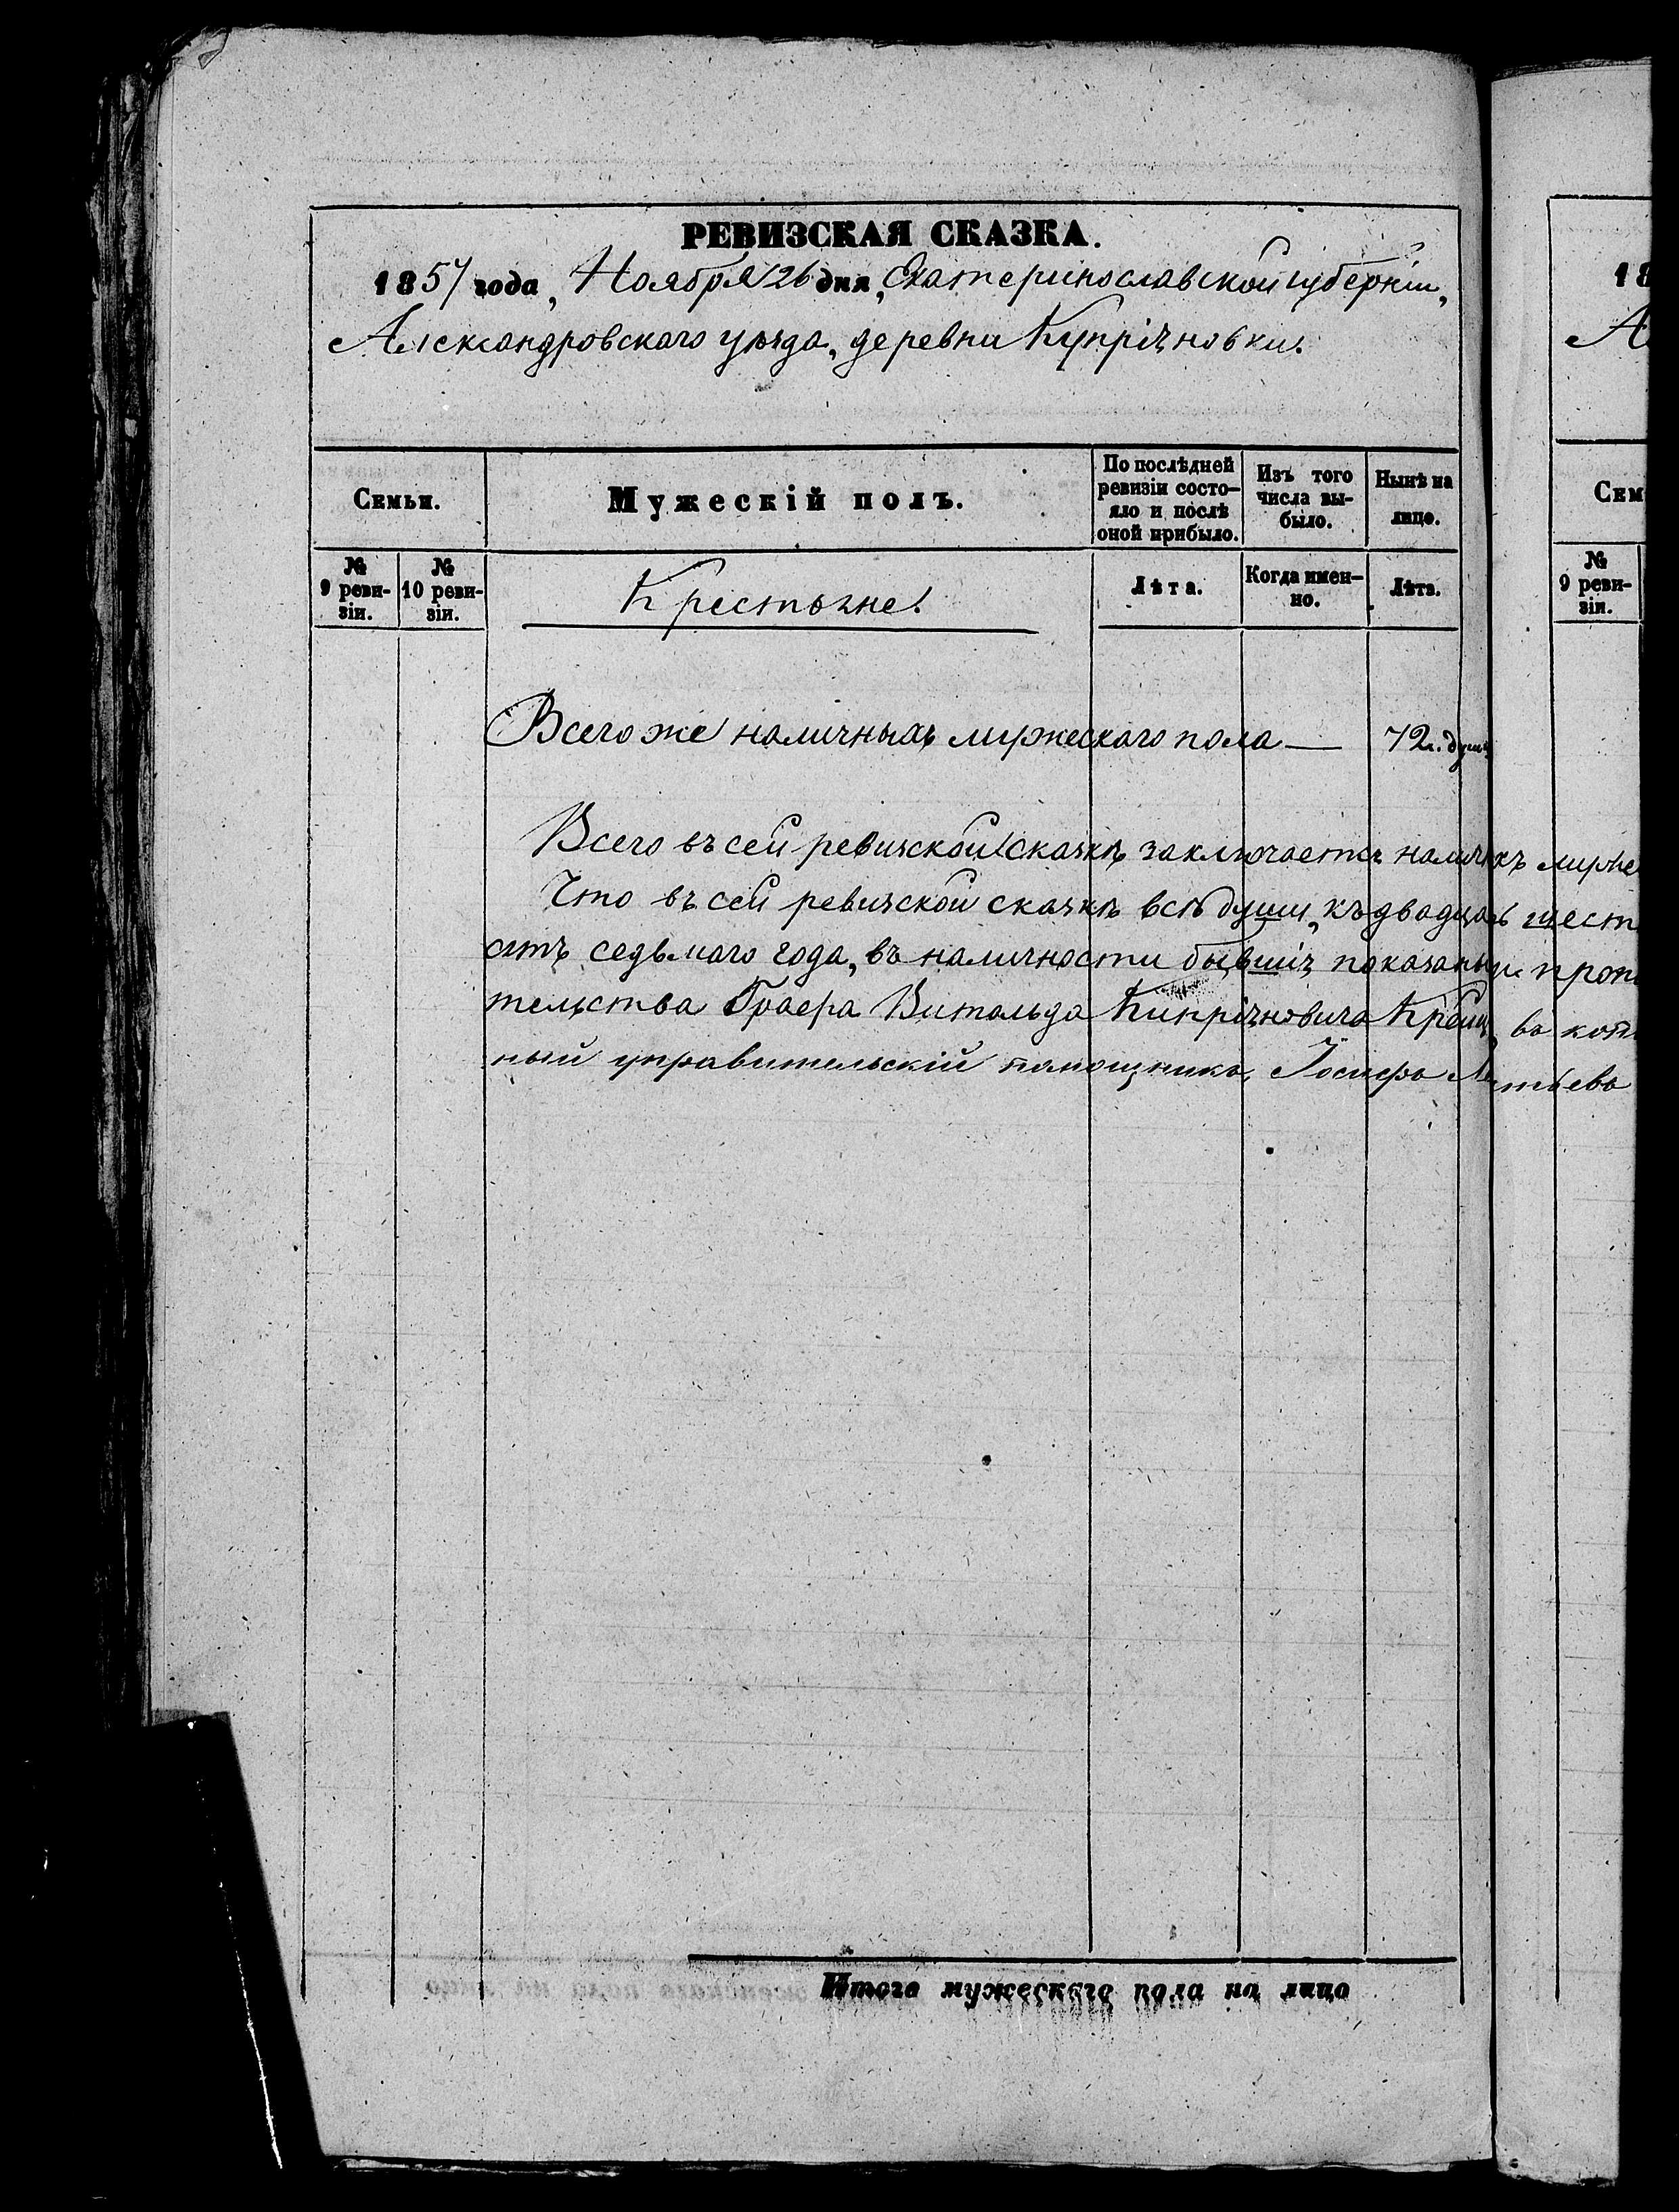 РЕВИЗСКАЯ СКАЗКА.
1857 года, Ноября 26 дня, Екатеринославской губерніи,
Александровскаго уѣзда, деревни Купріяновки.
Семьи.
Мужескій полъ.
По послѣдней ревизіи состо-
яло и послѣ оной прибыло.
Изъ того числа вы-
было.
Нынѣ на лицо.
№ 9 реви-
зіи.
№ 10 реви-
зіи.
Крестьяне.
Лѣта.
Когда имен-
но.
Лѣта.
Всего же наличныхъ мужескаго пола — 72. душ
Всего въ сей ревизской сказкѣ заключается муже
Что въ сей ревизской сказкѣ всѣ души, къ двадцать шест
ятъ седьмаго года, въ наличности бывшія показаны и
тельства Витольда Кипріяновича въ
ный управительскій помощникъ, Іосифъ
Итого мужескаго пола на лицо
18
А
Сем
№ 9 реви-
зіи.